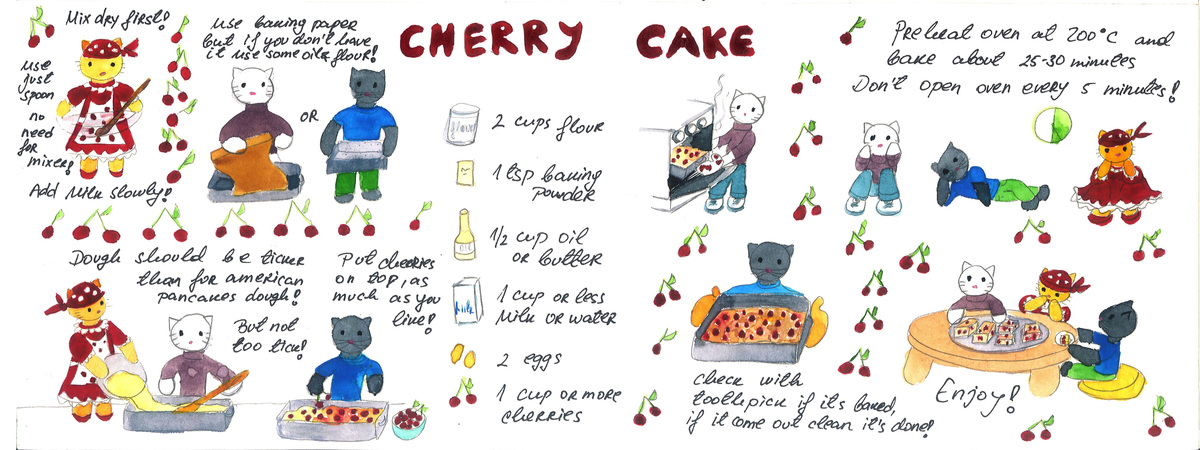 CHERRY CAKE
Mix dry first!
use
just
spoon
no
need
for
mixer!
Add Milk slowly!
use baking paper
but if you don't have
it use some oil & flour!
OR
Dough should be ticker
than for american
pancakes dough!
But not
too tick!
Put cherries
on top, as
much as you
like!
flour
2 cups flour
1 tsp baking
powder
OIL
1/2 cup oil
or butter
Milk
1 cup or less
Milk or water
2 eggs
1 cup or more
cherries
Preheat oven at 200°C and
bake about 25-30 minutes
Don't open oven every 5 minutes!
check with
toothpick if its baked,
if it come out clean it's done!
Enjoy!